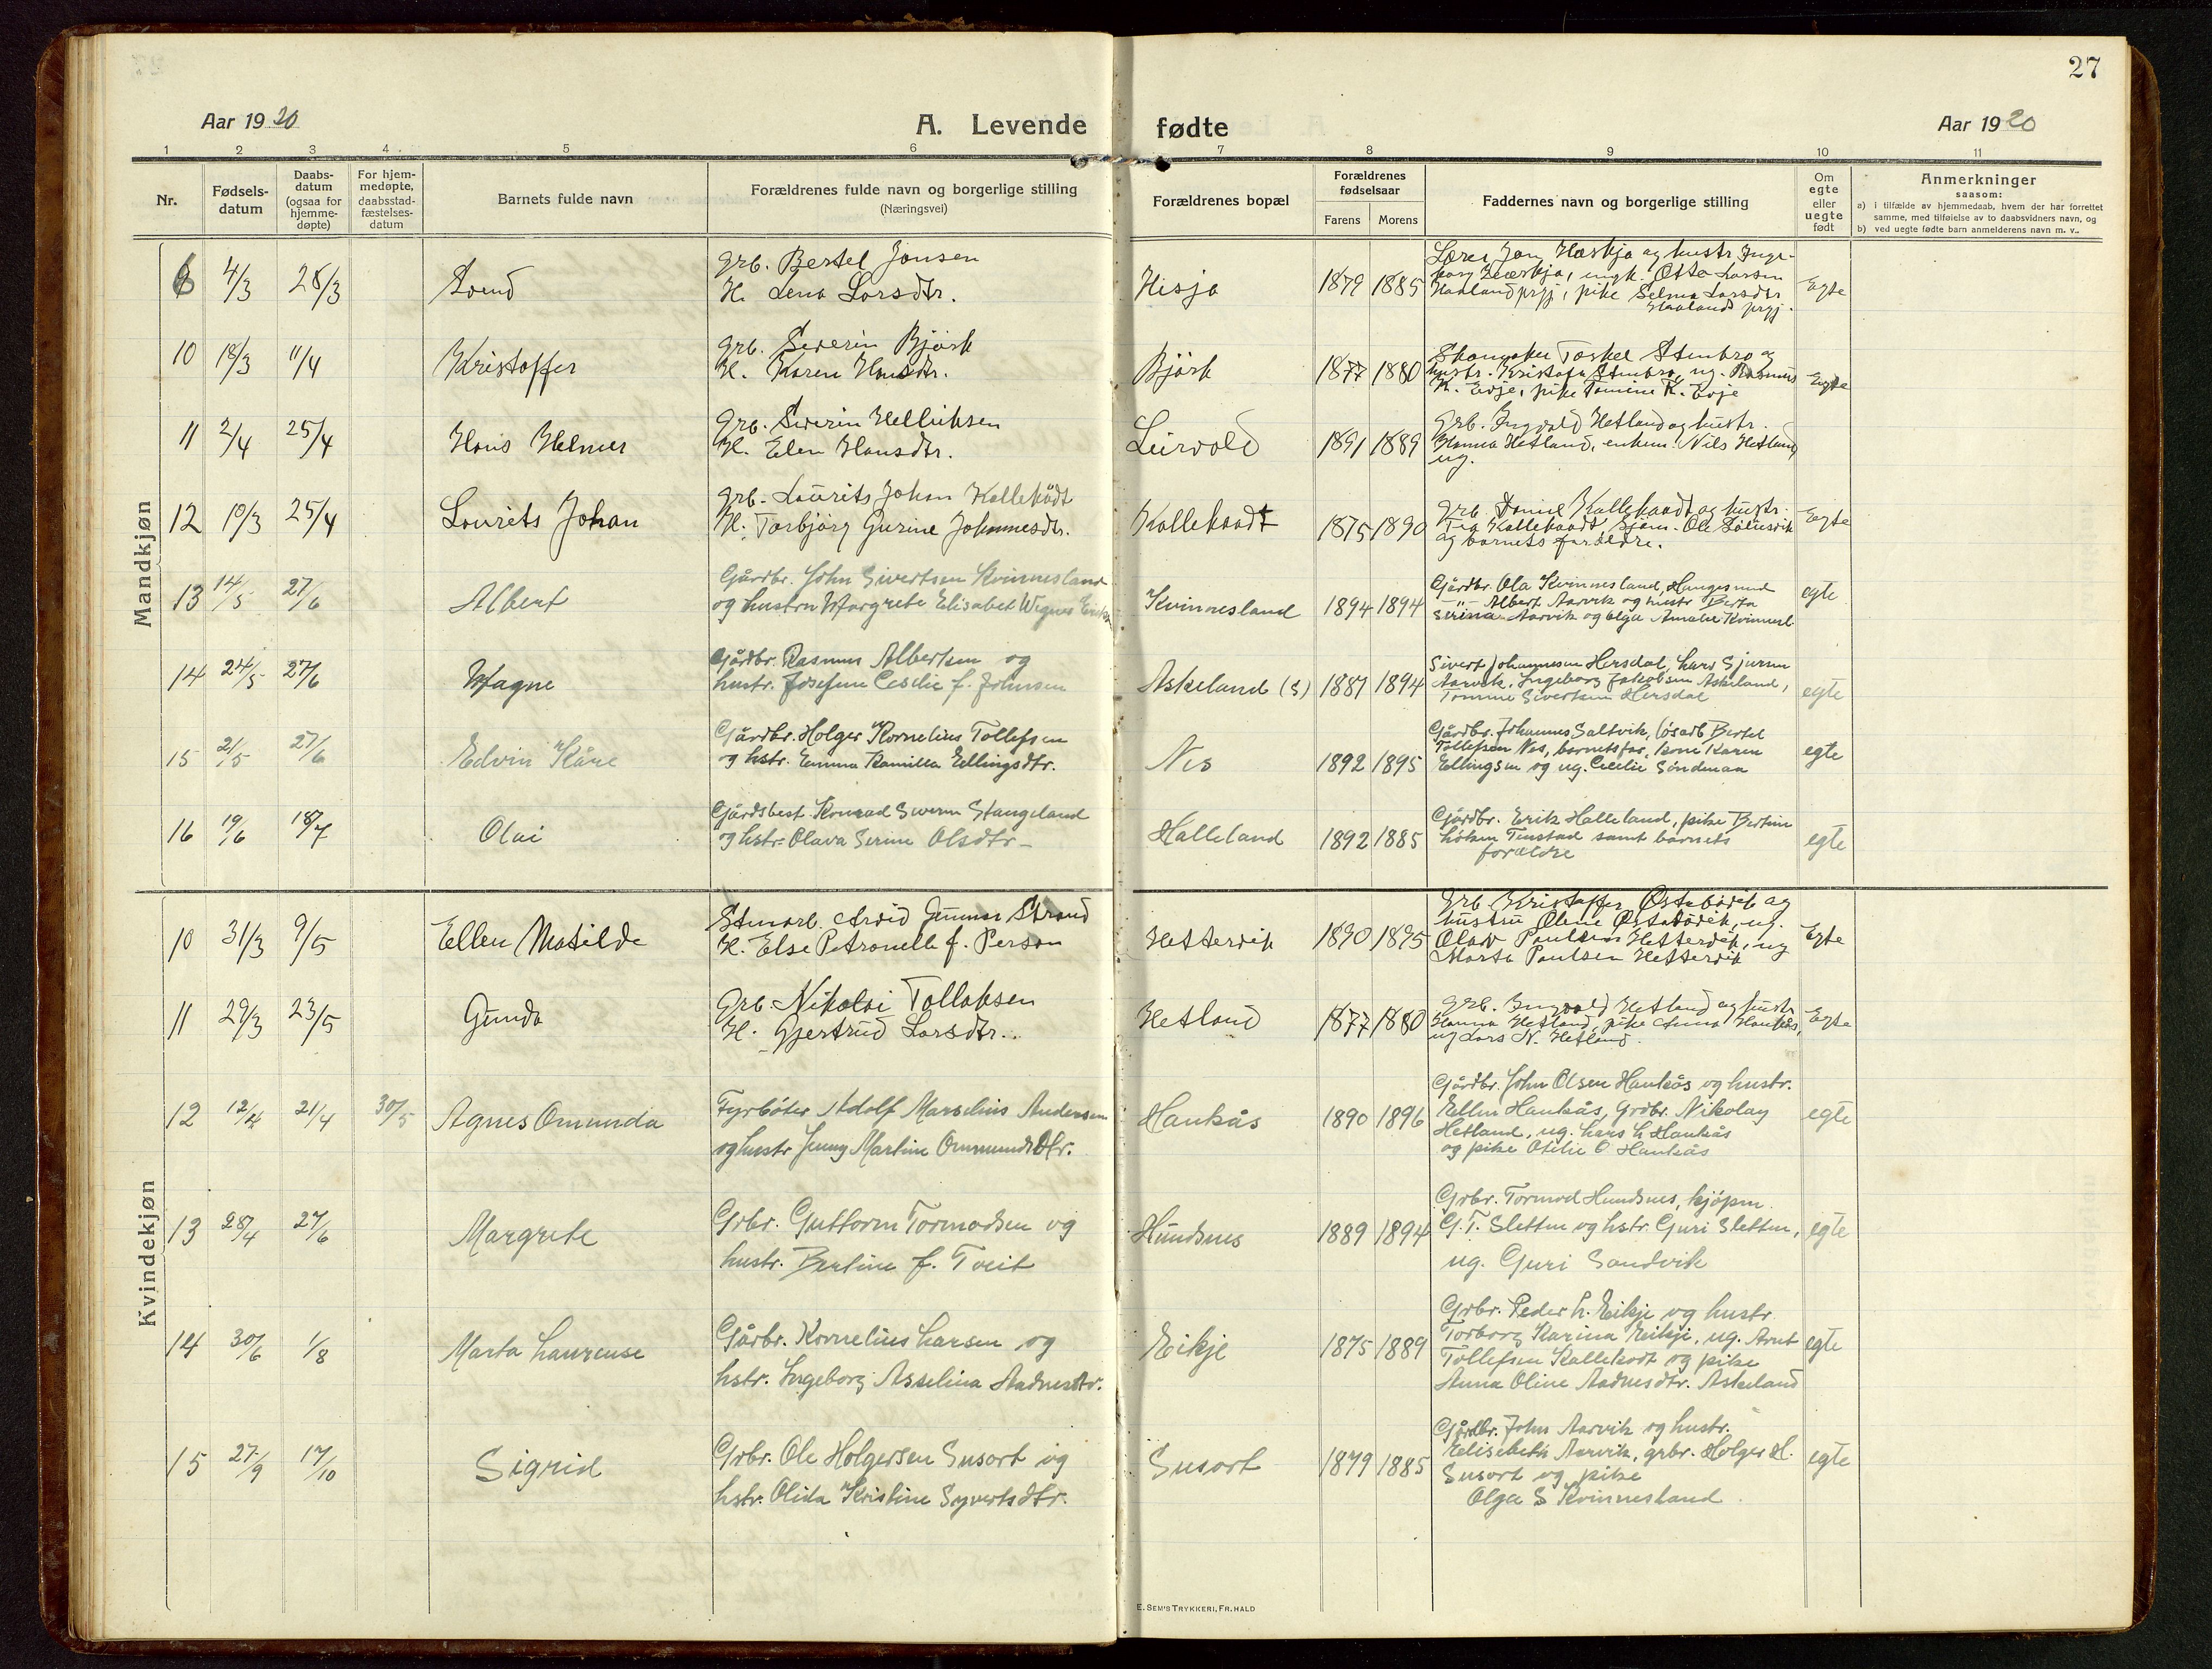 27
Aar 1920
A. Levende
fødte
Aar 1920
1 2 3 4 5 6 7 8 9 10 11
Nr.
Fødsels-
datum
Daabs-
datum
(ogsaa for
hjemme-
døpte)
For hjem-
medøpte,
daabsstad-
fæstelses-
datum
Barnets fulde navn
Forældrenes fulde navn og borgerlige stilling
(Næringsvei)
Forældrenes bopæl
Forældrenes
fødselsaar
Farens Morens
Faddernes navn og borgerlige stilling
Om
egte
eller
uegte
født
Anmerkninger
saasom:
a) i tilfælde av hjemmedaab, hvem der har forrettet
samme, med tilføielse av to daabsvidners navn, og
b) ved uegte fødte barn anmelderens navn m. v..
Mandkjøn
4/3 28/3
Grb. Bertel Jonsen
H. Lena Larsdtr.
Hisja 1879 1885
Otto Larsen
pike Selma Larsdtr
Egte
10 18/3 11/4 Kristoffer
Grb. Severin Bjørk
H. Karen Hansdtr.
Bjørk 1877 1880
Skomaker Torkel Stenbro og
hustr. Stenbro, ug. Rasmus
K. Evje, pike Tomine K. Evje
Egte
11 2/4 25/4 Hans Helmer
Grb. Severin Helliksen
H. Elen Hansdtr.
Leirvold 1891 1889
Grb. Ingvald Hetland og hustr.
Hanna Hetland, enkem. Nils Hetland
ug.
12 10/3 25/4 Lourits Johan
Grb. Lourits Johan Kallekodt
H. Torbjørg Gurine Johannesdtr.
Kallekodt 1875 1890
Grb. Kallekodt og hustr.
Kallekodt
og barnets forældre.
Egte
13 14/5 27/6 Albert
Gårdbr. John Sivertsen Kvinnesland
og hustru Margrete Elisabet
Kvinnesland 1894 1894
Gårdbr. Ola Kvinnesland,
-"- Albert Aarvik og hustr Berta
Serina Aarvik og Olga Amalie Kvinnesl.
egte
14 24/5 27/6 Magne
Gårdbr. Rasmus Albertsen og
hustr. Josefine Cecilie f. Johnsen
Askeland (s) 1887 1894
Sivert Johannesen Hersdal, Lars Sjursen
Aarvik, Ingeborg Jakobsen Askeland,
Tomine Sivertsen Hersdal
egte
15 21/5 27/6 Edvin Kåre
Gårdbr. Holger Kornelius Tollefsen
og hstr. Emma Kamilla Ellingsdtr.
Nes 1892 1895
Gårdbr. Johannes Saltvik, løsarb Bertel
Tollefsen Nes, barnets far, kone Karen
Ellingsen og ug. Cecilie Søndenaa
egte
16 19/6 18/7 Olai
Gårdsbest. Konrad Severin Stangeland
og hstr. Olava Serine Olsdtr-
Halleland 1892 1885
Gårdbr. Erik Halleland, pike Bertine
samt barnets
forældre
egte
Kvindekjøn
10 31/3 9/5 Ellen Matilde
Stenarb. Arvid Gunnar Strand
H. Else Petronelle f. Person
Hettervik 1890 1895
Grb. Kristoffer Østebøvik og
hustru Oline Østebøvik, ug.
Olav Paulsen Hettervik, ug
Marta Paulsen Hettervik
Egte
11 29/3 23/5 Gunda
Grb. Nikolai Tollaksen
H. Gjertrud Larsdtr..
Hetland 1877 1880
Grb. Ingvald Hetland og hustr
Hanna Hetland, pike Anna Haukås,
ug Lars N. Hetland.
Egte
12 12/4 21/4 30/5 Agnes Omunda
Fyrbøter Adolf Marselius Andersen
og hustr Jenny Martine Ommundsdtr.
Haukås 1890 1896
Gårdbr. John Olsen Haukås og hustr.
Ellen Haukås, Grdbr. Nikolay
Hetland, ug. Lars L Haukås
og pike Otilie O Haukås
egte
13 28/4 27/6 Margrete
Grbr. Guttorm Tormodsen og
hustr. Bertine f. Tveit
Hundsnes 1889 1894
Grbr. Tormod Hundsnes, kjøpm.
G. T. Sletten og hstr. Guri Sletten,
ug. Guri Sandvik
egte
14 30/6 1/8 Marta Laurense
Gårbr. Kornelius Larsen og
hstr. Ingeborg Asselina Aadnesdtr.
Eikje 1875 1889
Grbr. Peder L. Eikje og hustr
Torborg Karina Eikje, ug. Arnt
Tollefsen Kallekodt og pike
Anna Oline Aadnesdtr. Askeland
egte
15 27/9 17/10 Sigrid
Grbr. Ole Holgersen Susort og
hstr. Olida Kristine Syvertsdtr.
Susort 1879 1885
Gårdbr. John Aarvik og hustr.
Elisabeth Aarvik, grbr. Holger H.
Susort og pike
Olga S Kvinnesland
egte
E. SEM'S TRYKKERI, FR. HALD